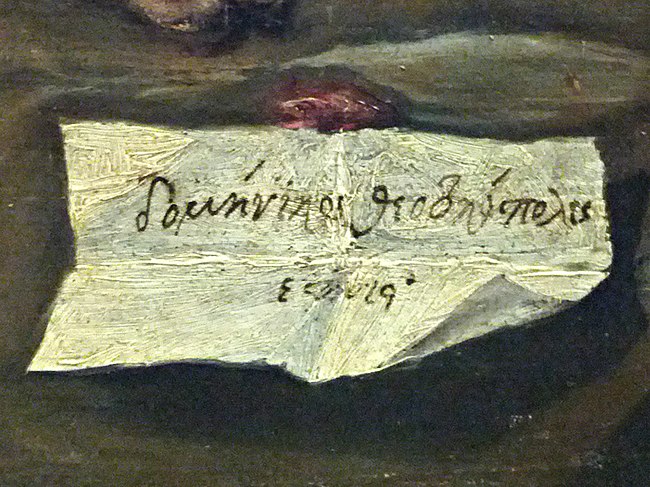 δομήνικος θεοτοκόπολις
ἐποίει